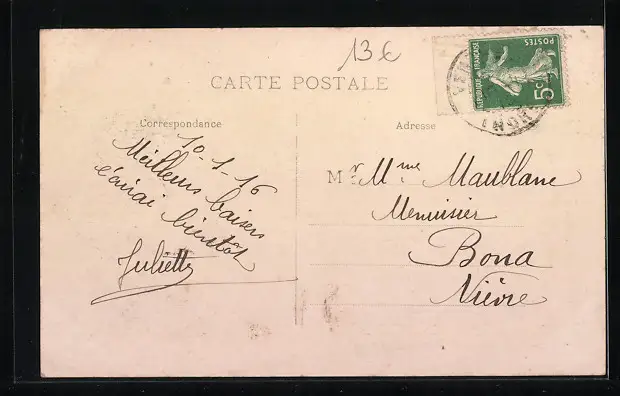 13€
CARTE POSTALE
REPUBLIQUE FRANÇAISE
POSTES
5c
Correspondance
Adresse
10-1-16
Meilleurs baisers
écrirai bientôt
Juliette
M r Mme Maublanc
Menuisier
Bona
Nièvre